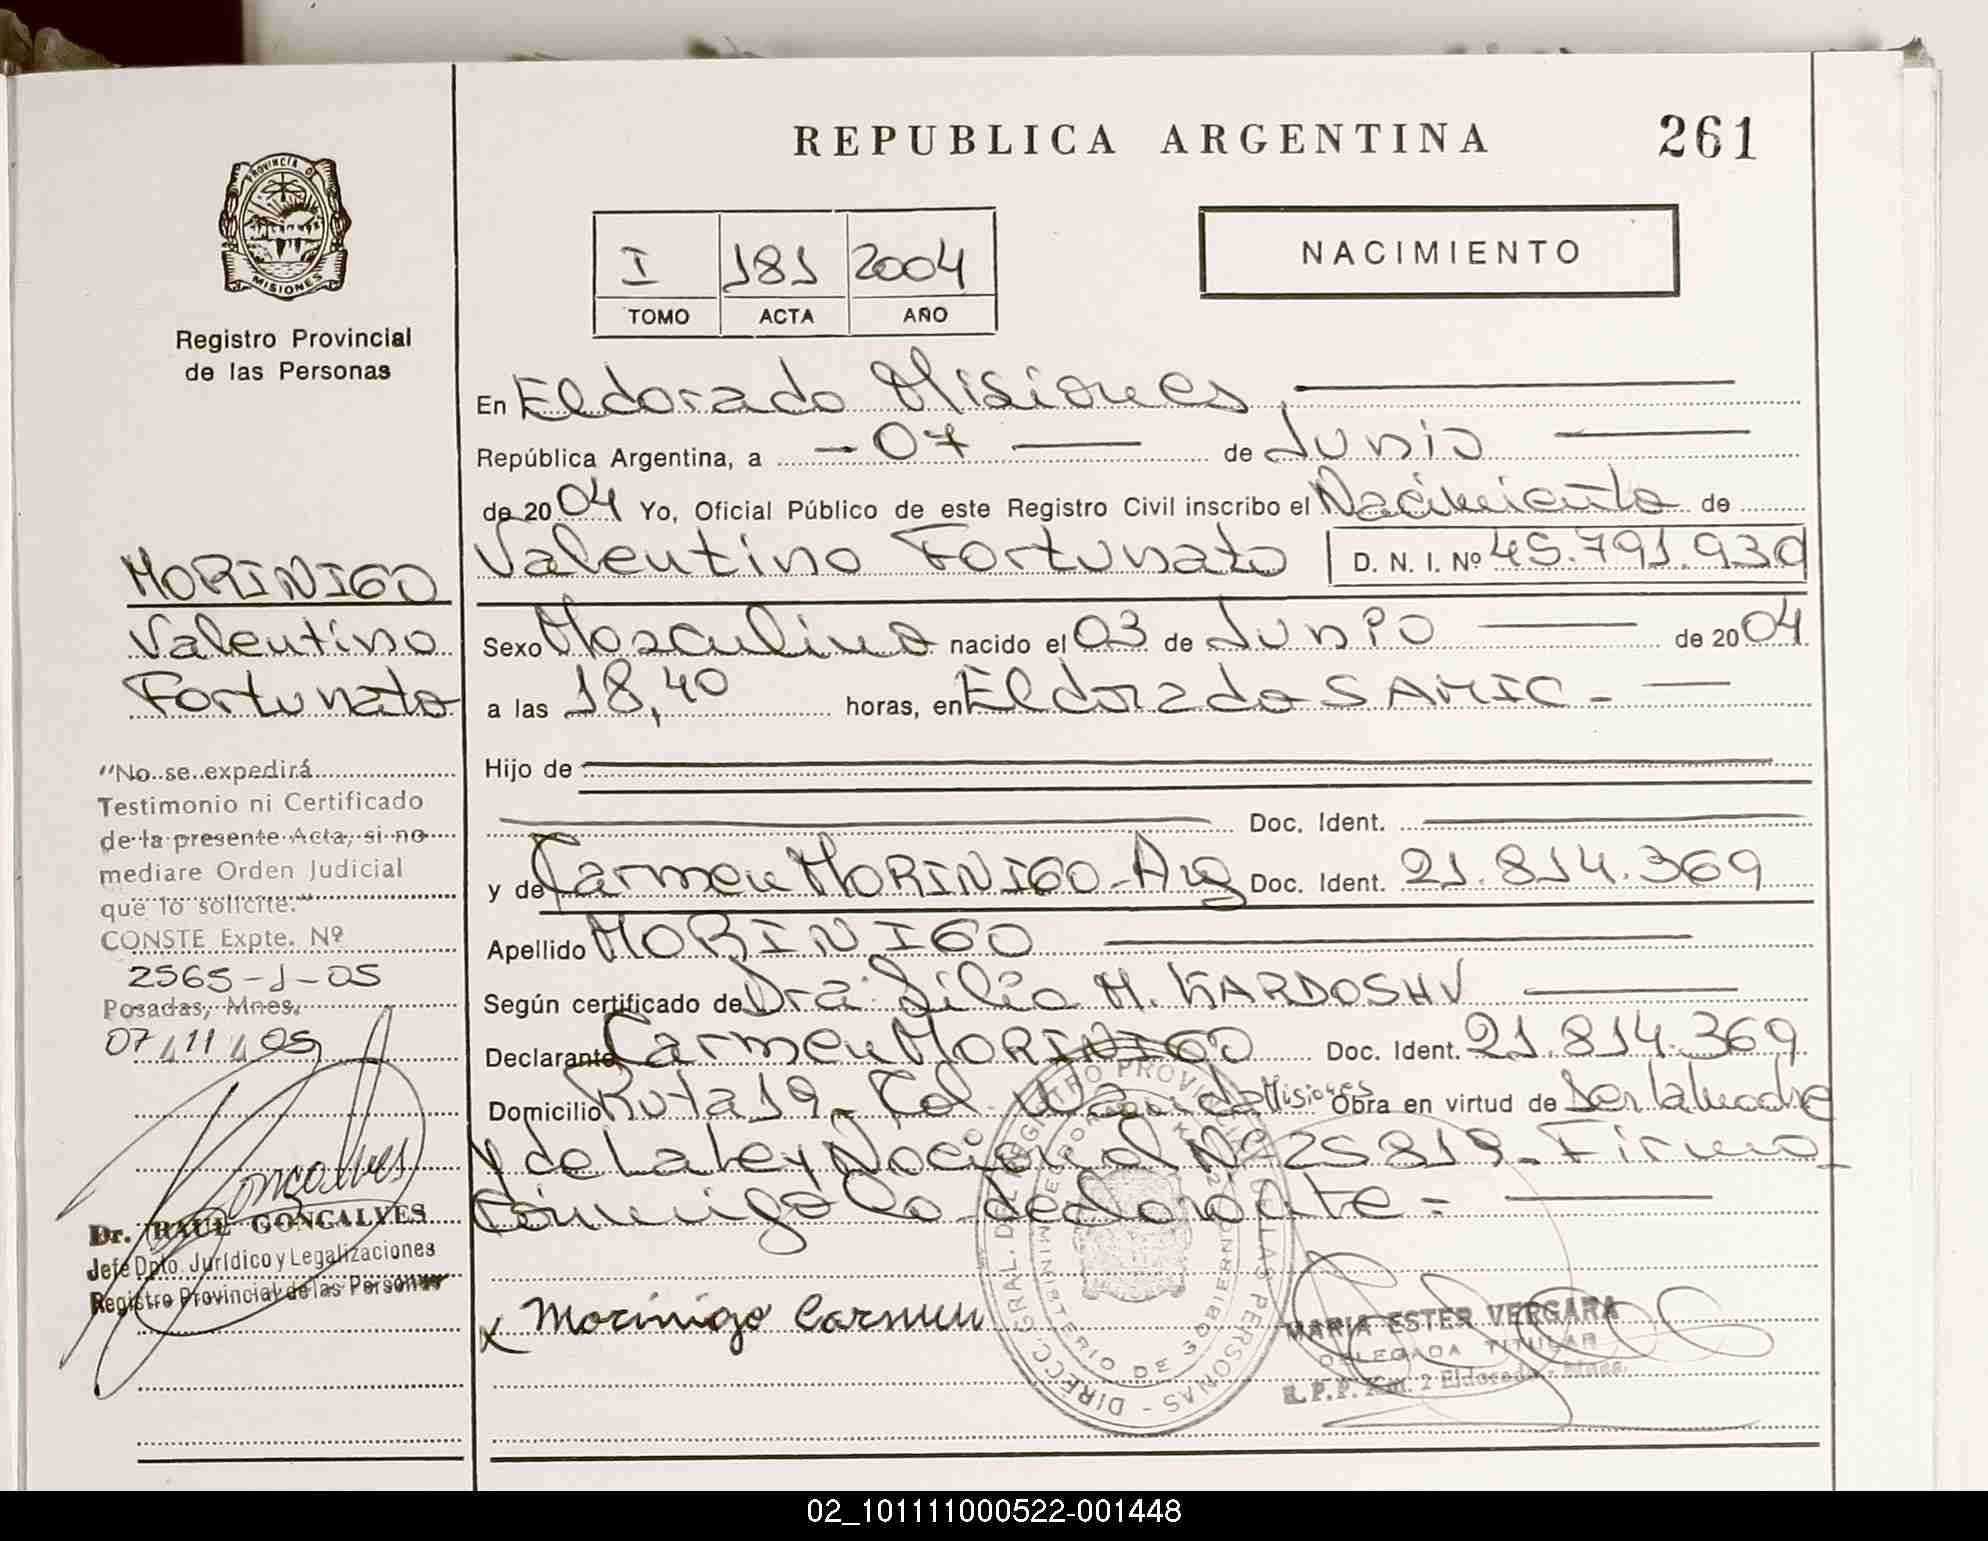 REPUBLICA ARGENTINA
261
PROVINCIA DE
MISIONES
Registro Provincial
de las Personas
I 181 2004
TOMO ACTA AÑO
NACIMIENTO
En Eldorado Misiones
República Argentina, a - 07 — de Junio
de 2004 Yo, Oficial Público de este Registro Civil inscribo el Nacimiento de
Valentino Fortunato D. N. I. Nº 45.791.930
Sexo Masculino nacido el 03 de Junio de 2004
a las 18,40 horas, en Eldorado SAMIC -
Hijo de
Doc. Ident.
y de Carmen MORINIGO - Arg Doc. Ident. 21.814.369
Apellido MORINIGO
Según certificado de Dra. Silia M. KARDOSHV
Declarante Carmen MORINIGO Doc. Ident. 21.814.369
Domicilio Ruta 19 - Col. Wanda Misiones Obra en virtud de Ser la Madre
y de la ley Nacional Nº 25819 - Firma
conmigo la declarante =
x Morinigo Carmen
DIRECC. GRAL. DEL REGISTRO PROVINCIAL DE LAS PERSONAS -
MINISTERIO DE GOBIERNO
MARIA ESTER VERGARA
DELEGADA TITULAR
R. P. P. Km. 2 Eldorado - Mnes.
MORINIGO
Valentino
Fortunato
"No se expedirá
Testimonio ni Certificado
de la presente Acta, si no
mediare Orden Judicial
que lo solicite."
CONSTE Expte. Nº
2565-J-05
Posadas, Mnes.
07/11/05
Gonçalves
Dr. RAUL GONCALVES
Jefe Dpto. Jurídico y Legalizaciones
Registro Provincial de las Personas
02_101111000522-001448